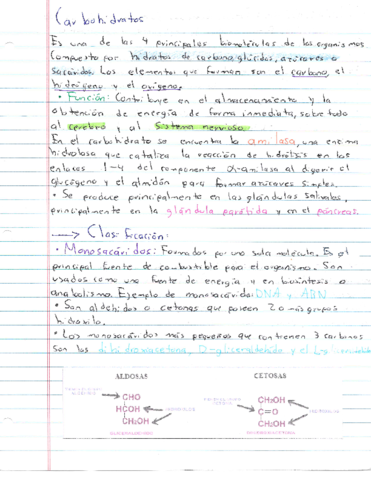 Carbohidratos
Es una de las 4 principales biomoléculas de los organismos
Compuesto por hidratos de carbono, glúcidos, azúcares o
sacáridos. Los elementos que forman son el carbono, el
hidrógeno y el oxígeno.
• Función: Contribuye en el almacenamiento y la
obtención de energía de forma inmediata, sobre todo
al cerebro y al sistema nervioso.
En el carbohidrato se encuentra la amilasa, una enzima
hidrolasa que cataliza la reacción de hidrólisis en los
enlaces 1-4 del componente α-amilasa al digerir el
glucógeno y el almidón para formar azúcares simples.
• Se produce principalmente en las glándulas salivales,
principalmente en la glándula parótida y en el páncreas.
→ Clasificación:
• Monosacáridos: Formados por una sola molécula. Es el
principal fuente de combustible para el organismo. Son
usados como una fuente de energía y en biosíntesis o
anabolismo. Ejemplo de monosacárido: DNA y ARN
• Son aldehidos o cetonas que poseen 2 o más grupos
hidroxilo.
• Los monosacáridos más pequeños que contienen 3 carbonos
son los dihidroxiacetona, D-gliceraldehído y el L-
ALDOSAS CETOSAS
CHO CH₂OH
HCOH C=O
CH₂OH CH₂OH